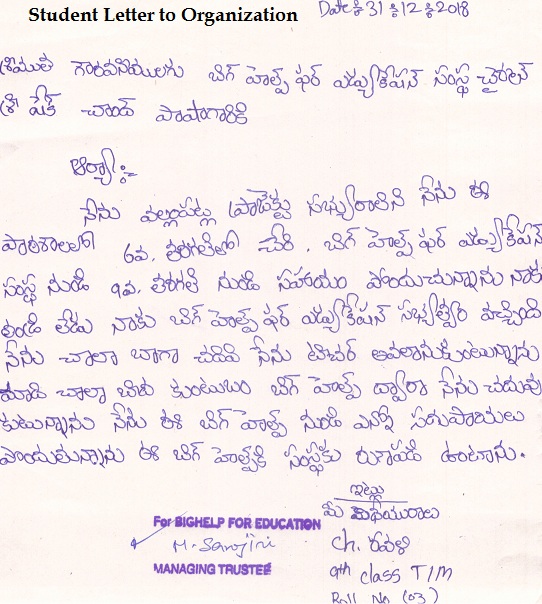 Student Letter to Organization
Date : 31 : 12 : 2018
శ్రీయుత గౌరవనీయులగు బిగ్ హెల్ప్ ఫర్ ఎడ్యుకేషన్ సంస్థ చైర్మన్
శ్రీ షేక్ చాంద్ పాషాగారికి
ఆర్యా :-
నేను ప్రాజెక్టు సభ్యురాలిని నేను ఈ
పాఠశాలలో 6వ. తరగతిలో చేరి. బిగ్ హెల్ప్ ఫర్ ఎడ్యుకేషన్
సంస్థ నుండి 9వ. తరగతి నుండి సహాయం పొందుచున్నాను నాకు
తండ్రి లేడు నాకు బిగ్ హెల్ప్ ఫర్ ఎడ్యుకేషన్ సభ్యత్వం వచ్చింది
నేను చాలా బాగా చదివి నేను టీచర్ అవలానుకుంటున్నాను
మాది చాలా బీద కుంటుబం బిగ్ హెల్ప్ ద్వారా నేను చదువు
కుటున్నాను నేను ఈ బిగ్ హెల్ప్ నుండి ఎన్నో సదుపాయలు
పొందుతున్నాను ఈ బిగ్ హెల్ప్‌కి సంస్థకు రుణపడి ఉంటాను.
ఇట్లు
మీ విధేయురాలు
Ch. రవళి
9th class T/M
Roll No (03)
For BIGHELP FOR EDUCATION
M. Sarojini
MANAGING TRUSTEE